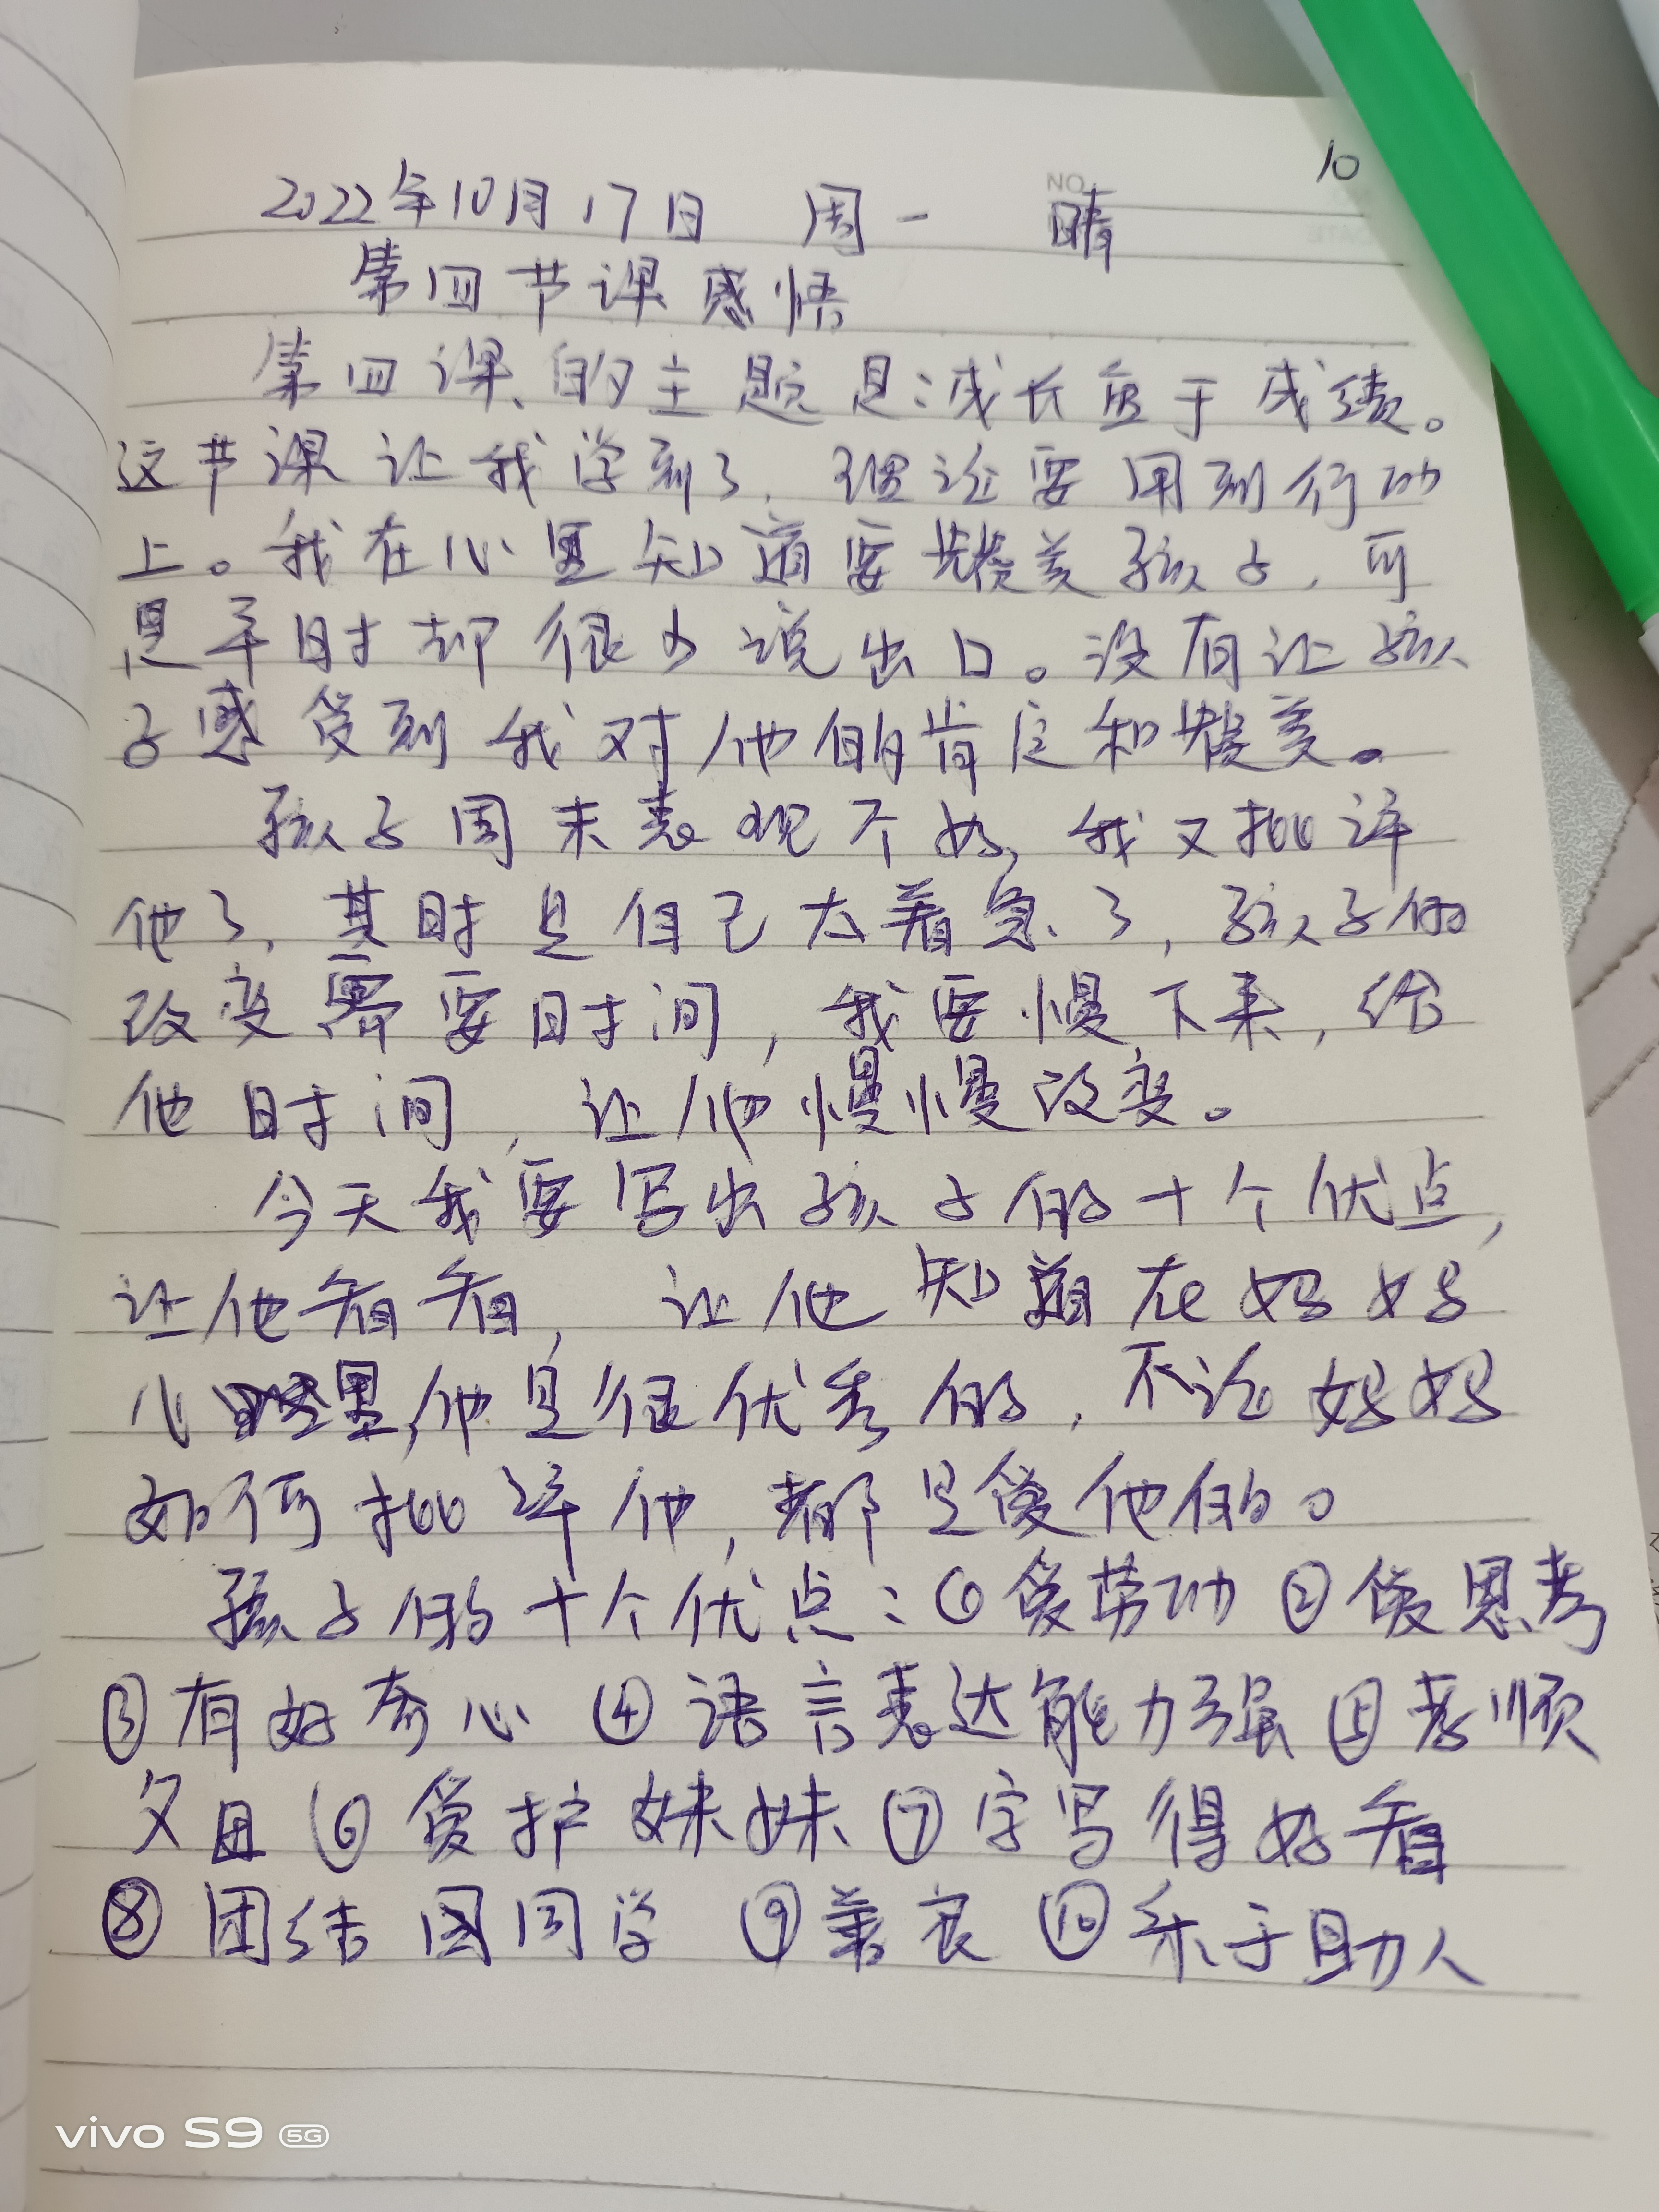 10
NO
2022年10月17日 周一 晴
DATE
第四节课感悟
第四课的主题是:成长重于成绩。
这节课让我学到了,理论要用到行动
上。我在心里知道要赞美孩子,可
是平时却很少说出口。没有让孩
子感受到我对他的肯定和赞美。
孩子周末表现不好,我又批评
他了,其时是自己太着急了,孩子的
改变需要时间,我要慢下来,给
他时间,让他慢慢改变。
今天我要写出孩子的十个优点,
让他看看,让他知道在妈妈
心里,他是很优秀的,不论妈妈
如何批评他,都是爱他的。
孩子的十个优点:①爱劳动②爱思考
③有好奇心④语言表达能力强⑤孝顺
父母⑥爱护妹妹⑦字写得好看
⑧团结同学⑨善良⑩乐于助人
vivo S9 5G